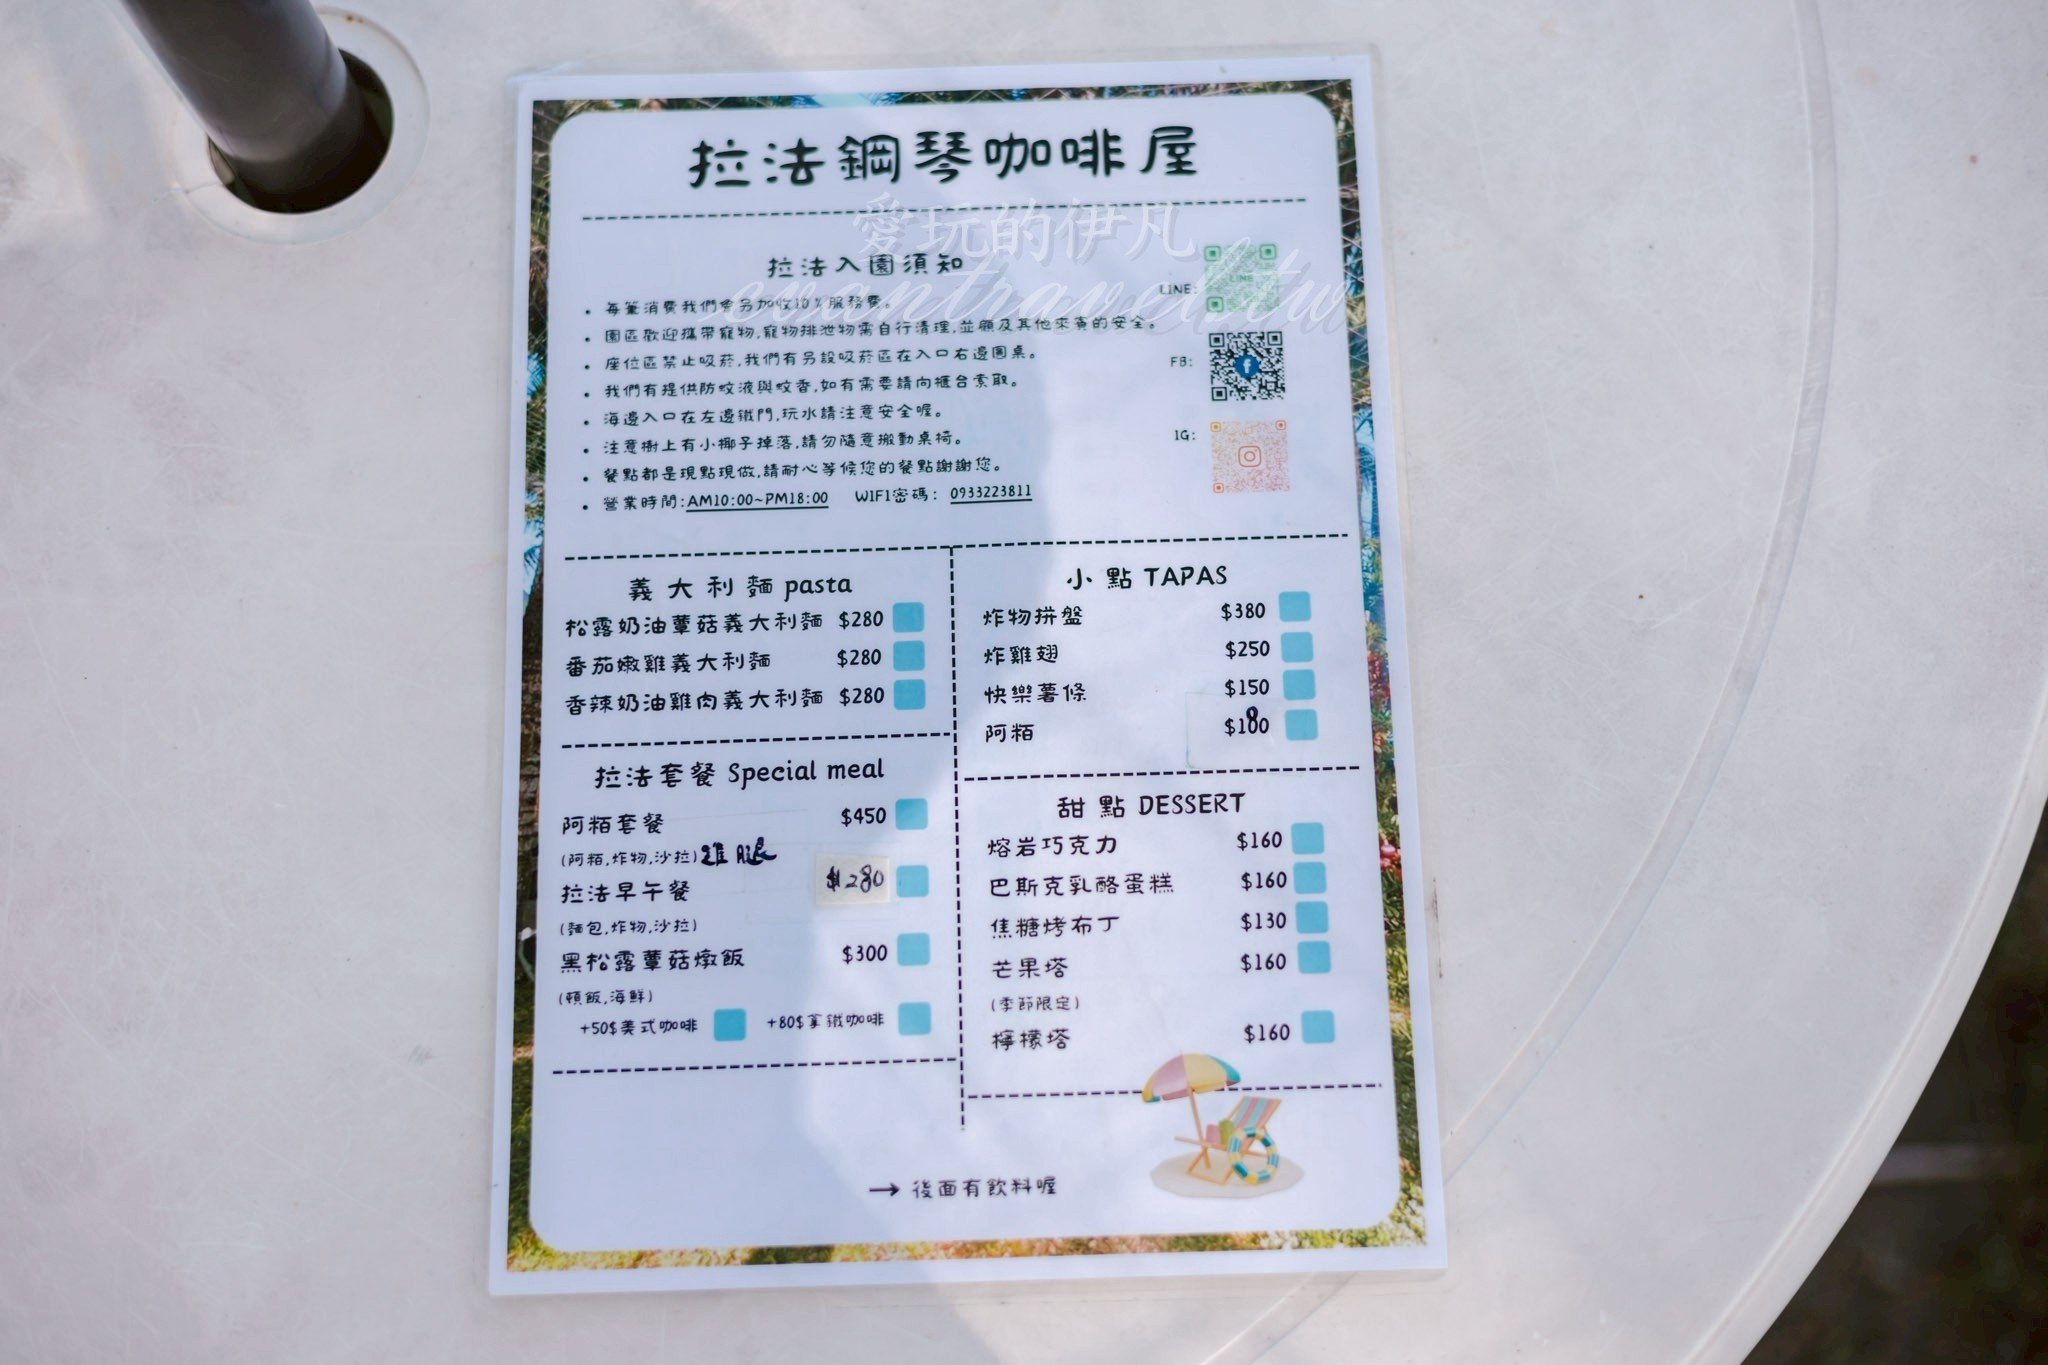 拉法鋼琴咖啡屋
愛玩的伊凡
evantravel.tw
拉法入園須知
每筆消費我們會另加收10%服務費。
園區歡迎攜帶寵物,寵物排泄物需自行清理,並顧及其他來賓的安全。
座位區禁止吸菸,我們有另設吸菸區在入口右邊圓桌。
我們有提供防蚊液與蚊香,如有需要請向櫃台索取。
海邊入口在左邊鐵門,玩水請注意安全喔。
注意樹上有小椰子掉落,請勿隨意搬動桌椅。
餐點都是現點現做,請耐心等候您的餐點謝謝您。
營業時間:AM10:00~PM18:00 WIFI密碼: 0933223811
LINE:
LINE
FB:
IG:
義大利麵 pasta
松露奶油蕈菇義大利麵 $280
番茄嫩雞義大利麵 $280
香辣奶油雞肉義大利麵 $280
拉法套餐 Special meal
阿粨套餐 $450
(阿粨,炸物,沙拉) 雞腿
拉法早午餐 $280
(麵包,炸物,沙拉)
黑松露蕈菇燉飯 $300
(頓飯,海鮮)
+50$美式咖啡 +80$拿鐵咖啡
小點 TAPAS
炸物拼盤 $380
炸雞翅 $250
快樂薯條 $150
阿粨
甜點 DESSERT
熔岩巧克力 $160
巴斯克乳酪蛋糕 $160
焦糖烤布丁 $130
芒果塔 $160
(季節限定)
檸檬塔 $160
→ 後面有飲料喔